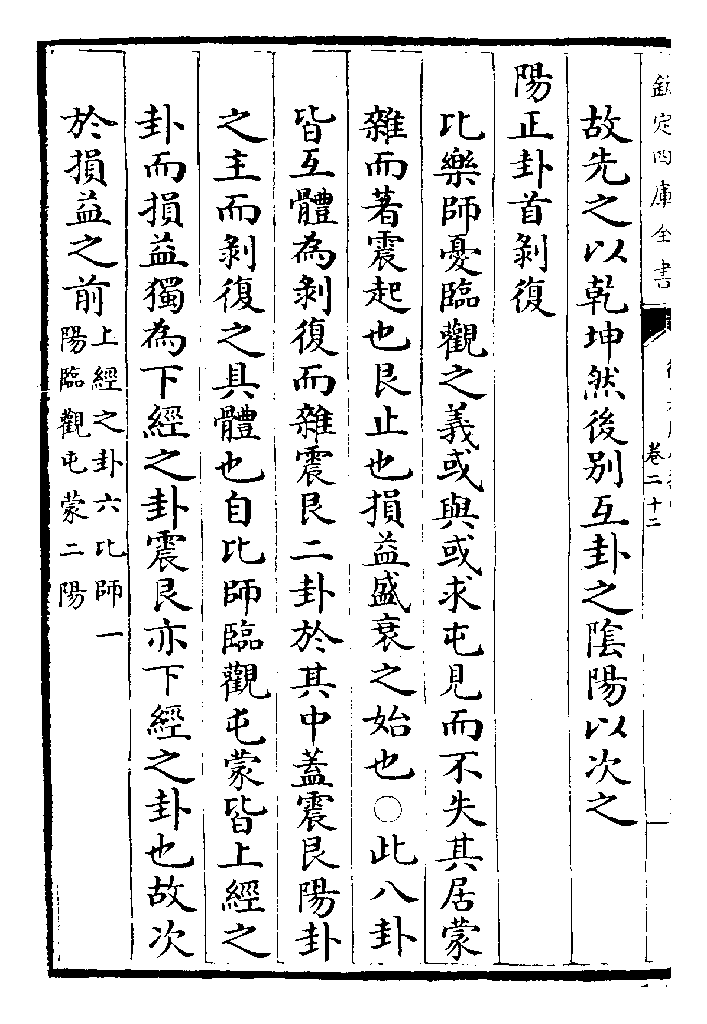 欽定四庫全書
卷二十二
故先之以乾坤然後別互卦之陰陽以次之
陽正卦首剝復
比樂師憂臨觀之義或與或求屯見而不失其居蒙
雜而著震起也艮止也損益盛衰之始也○此八卦
皆互體為剝復而雜震艮二卦於其中蓋震艮陽卦
之主而剝復之具體也自比師臨觀屯蒙皆上經之
卦而損益獨為下經之卦震艮亦下經之卦也故次
於損益之前上經之卦六比師一
陽臨觀屯蒙二陽